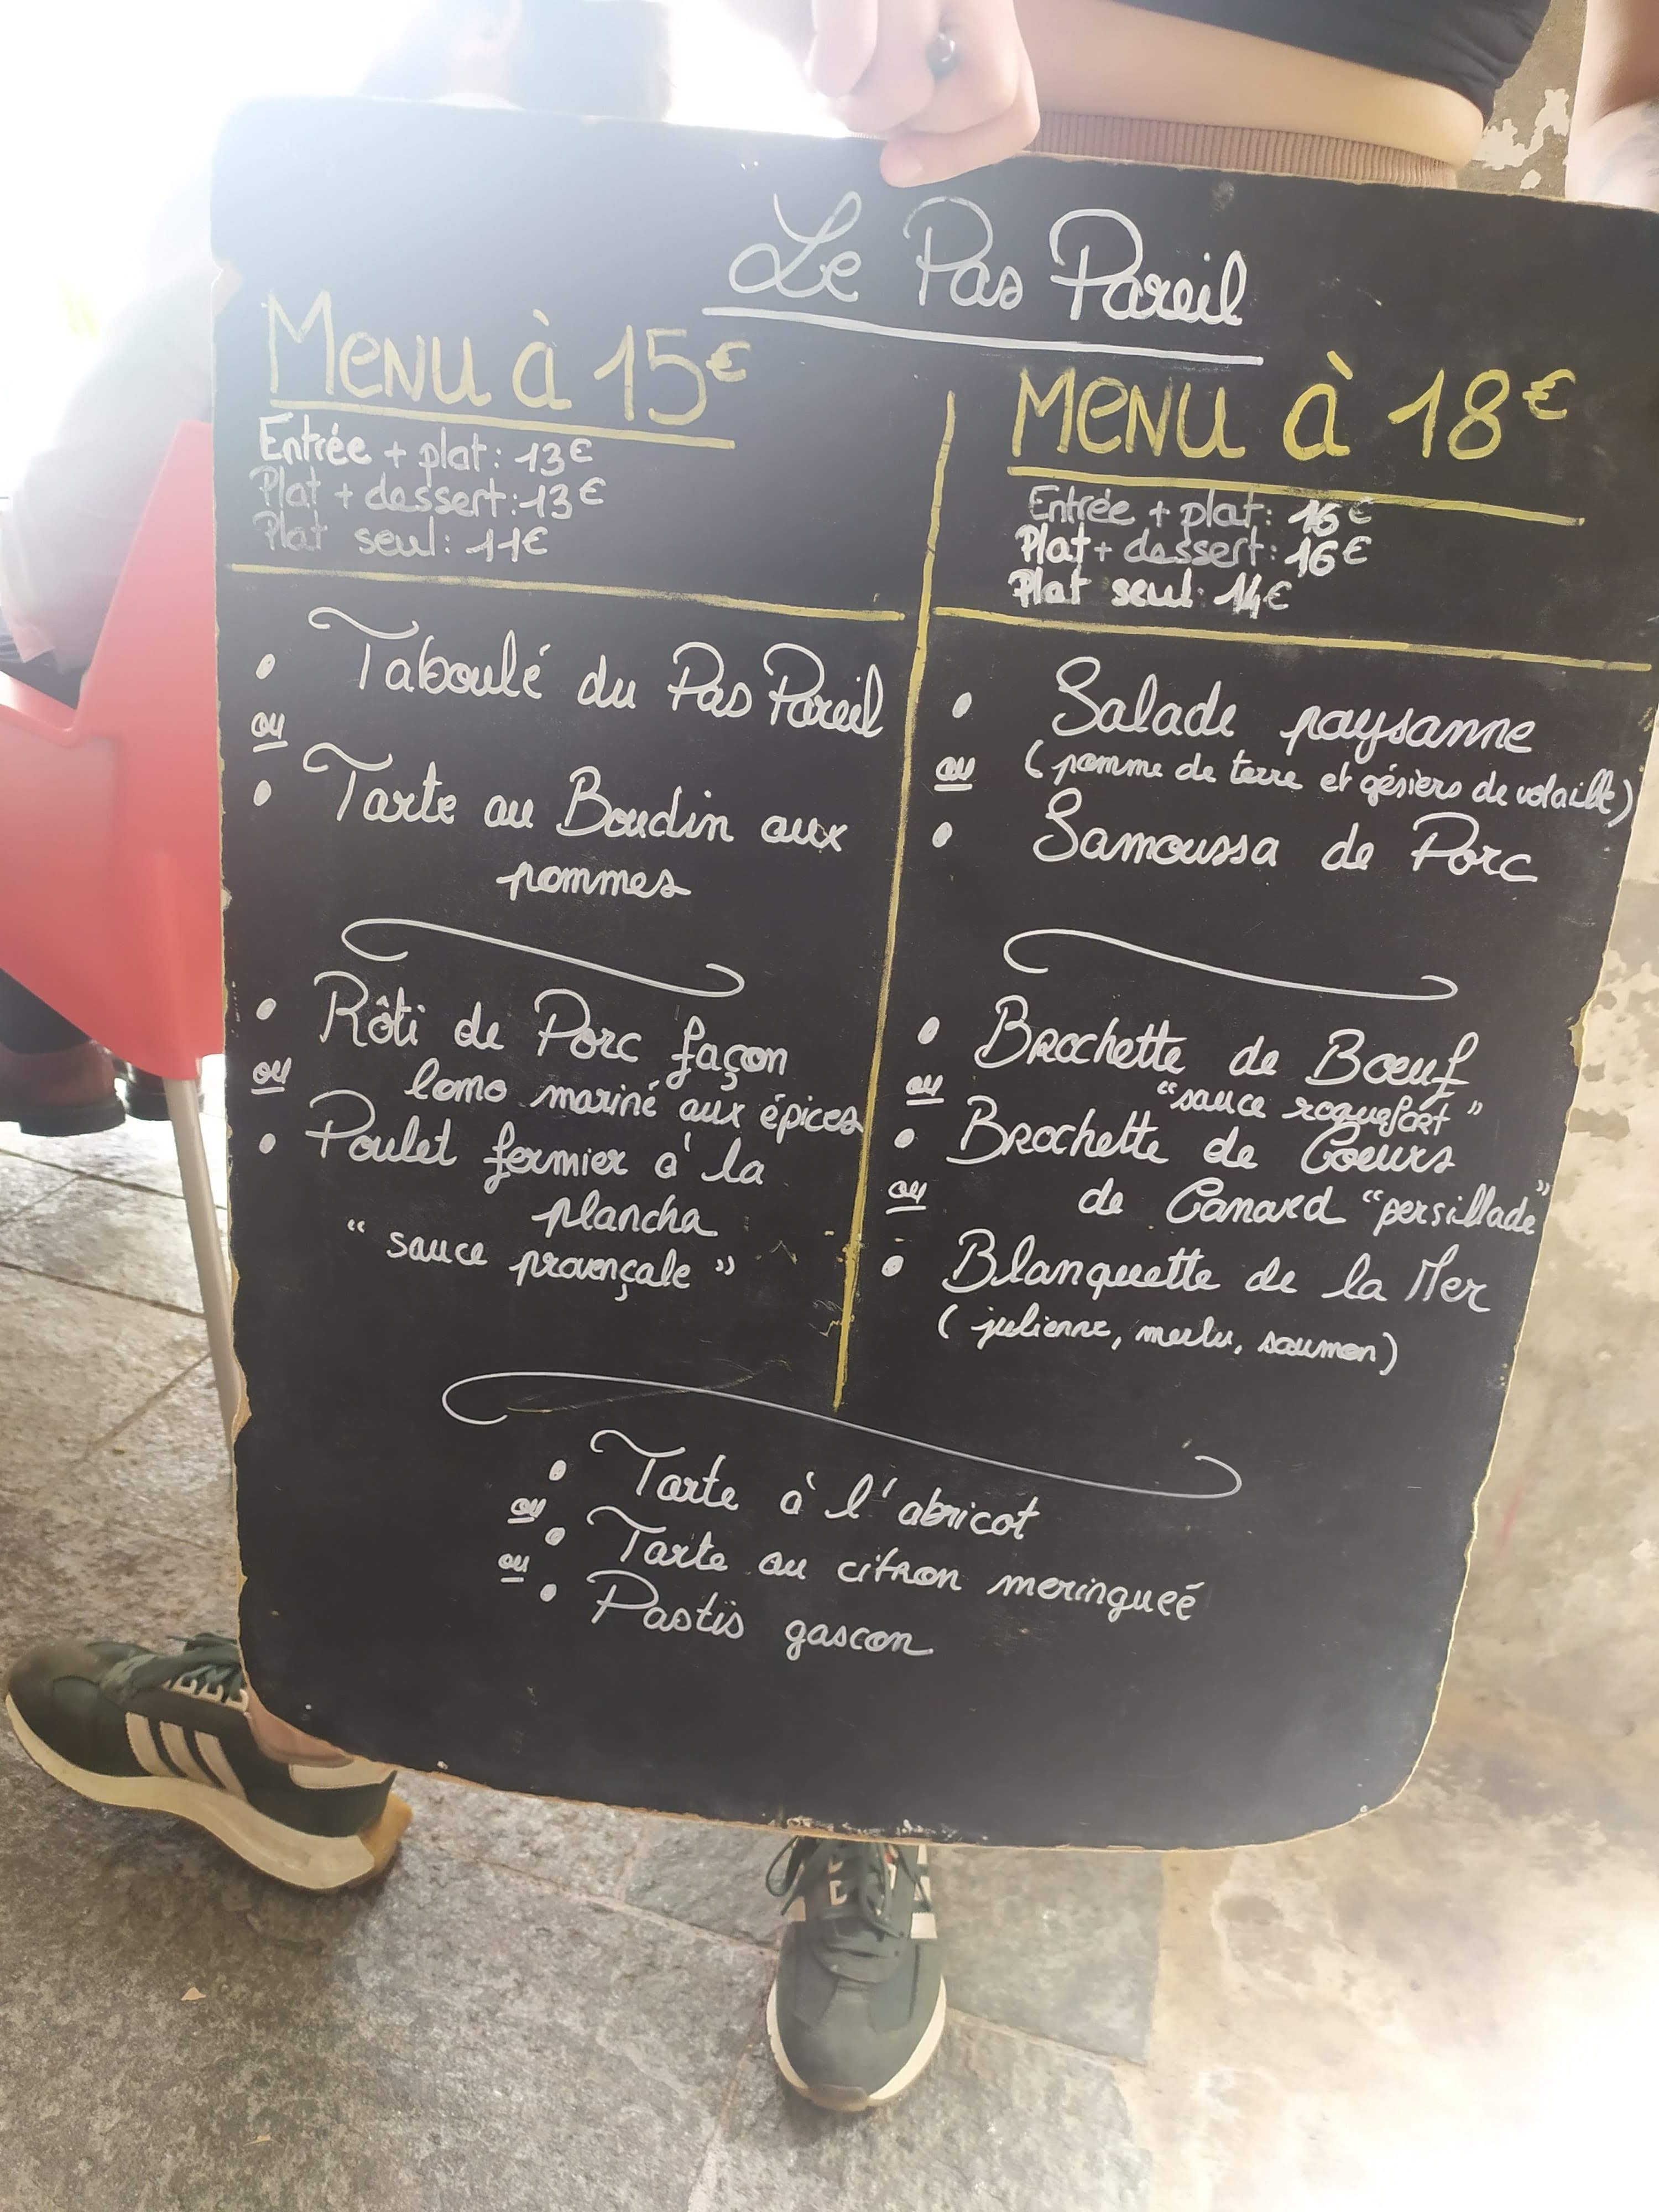 Le Pas Pareil
Menu à 15€
Entrée + plat: 13€
Plat + dessert: 13€
Plat seul: 11€
• Taboulé du Pas Pareil
ou
• Tarte au Boudin aux
pommes
• Rôti de Porc façon
ou
lomo mariné aux épices
• Poulet fermier à la
plancha
“sauce provençale”
Menu à 18€
Entrée + plat: 16€
Plat + dessert: 16€
Plat seul: 14€
• Salade paysanne
ou (pomme de terre et gésiers de volaille)
• Samoussa de Porc
• Brochette de Bœuf
ou “sauce roquefort”
• Brochette de Coeurs
ou de Canard “persillade”
• Blanquette de la Mer
(julienne, merlu, saumon)
• Tarte à l'abricot
ou
• Tarte au citron meringueé
ou
• Pastis gascon